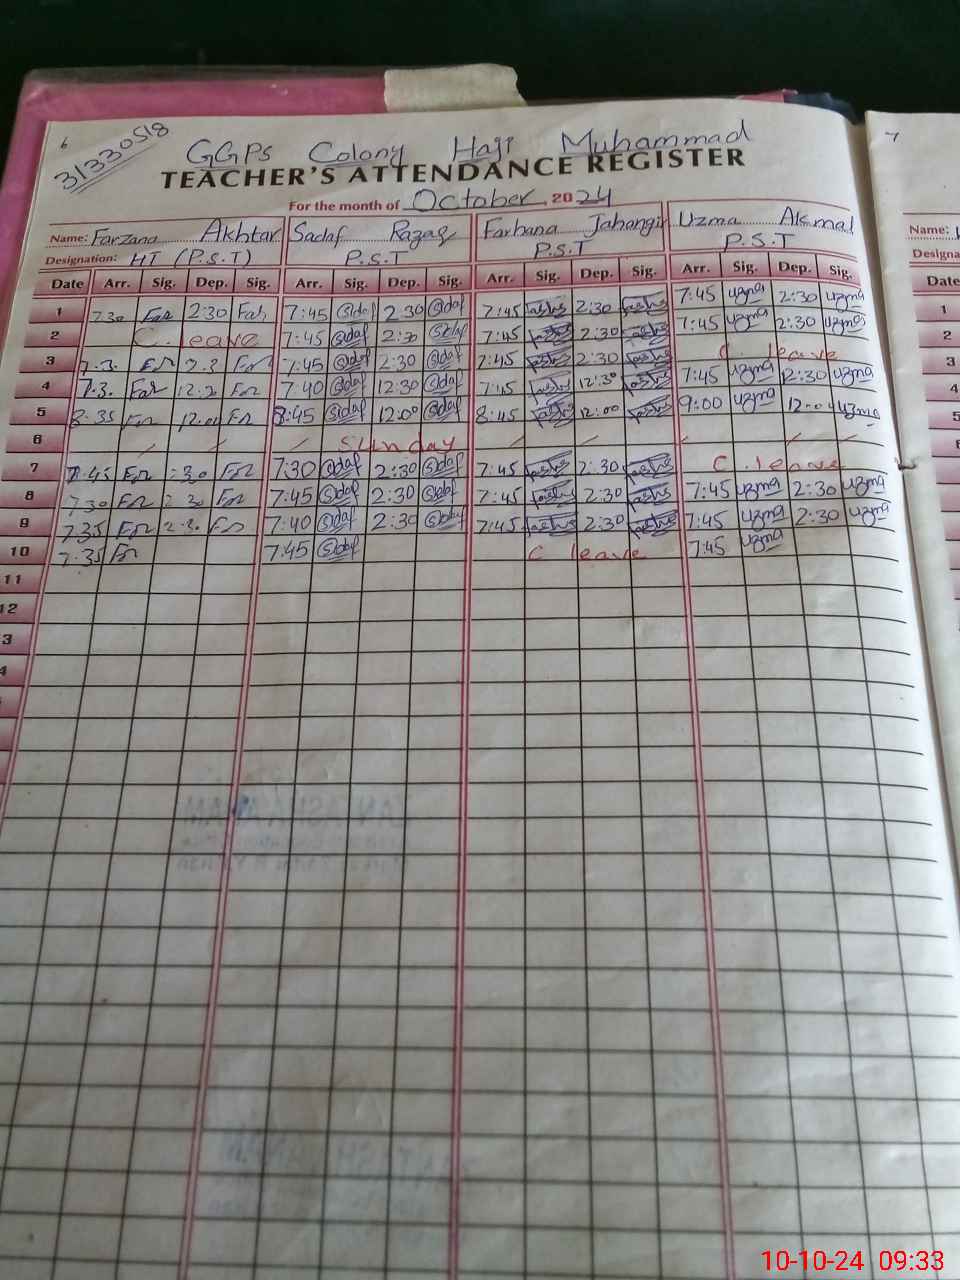 6
31330518
GGPS Colony Haji Muhammad
TEACHER'S ATTENDANCE REGISTER
For the month of October, 2024
Name: Farzana Akhtar Sadaf Razaq Farhana Jahangir Uzma Akmal
Designation: HT (P.S.T) P.S.T P.S.T P.S.T
Date Arr. Sig. Dep. Sig. Arr. Sig. Dep. Sig. Arr. Sig. Dep. Sig. Arr. Sig. Dep. Sig.
1 7.30 Far 2:30 Far 7:45 Sdaf 2:30 Sdaf 7:45 2:30 7:45 uzma 2:30 uzma
2 C. leave 7:45 Sdaf 2:30 Sdaf 7:45 2:30 7:45 uzma 2:30 uzma
3 7.3. Far 2.3 Far 7:45 Sdaf 2:30 Sdaf 7:45 2:30 C. leave
4 7.3. Far 12:3 Far 7:40 Sdaf 12:30 Sdaf 7:45 12:30 7:45 uzma 12:30 uzma
5 8:35 Far 12:00 Far 8:45 Sdaf 12:00 Sdaf 8:45 12:00 9:00 uzma 12:00 uzma
6 Sunday
7 7:45 Far :30 Far 7:30 Sdaf 2:30 Sdaf 7:45 2:30 C. leave
8 7:30 Far 2:30 Far 7:45 Sdaf 2:30 Sdaf 7:45 2:30 7:45 uzma 2:30 uzma
9 7:35 Far 2:30 Far 7:40 Sdaf 2:30 Sdaf 7:45 2:30 7:45 uzma 2:30 uzma
10 7:35 Far 7:45 Sdaf C leave 7:45 uzma
11
12
3
4
7
Name:
Designa
Date
1
2
3
4
5
6
7
8
9
10
11
12
10-10-24 09:33